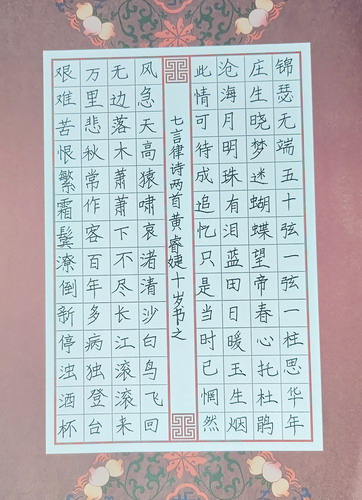 锦瑟无端五十弦一弦一柱思华年
庄生晓梦迷蝴蝶望帝春心托杜鹃
沧海月明珠有泪蓝田日暖玉生烟
此情可待成追忆只是当时已惘然
七言律诗两首黄睿婕十岁书之
风急天高猿啸哀渚清沙白鸟飞回
无边落木萧萧下不尽长江滚滚来
万里悲秋常作客百年多病独登台
艰难苦恨繁霜鬓潦倒新停浊酒杯